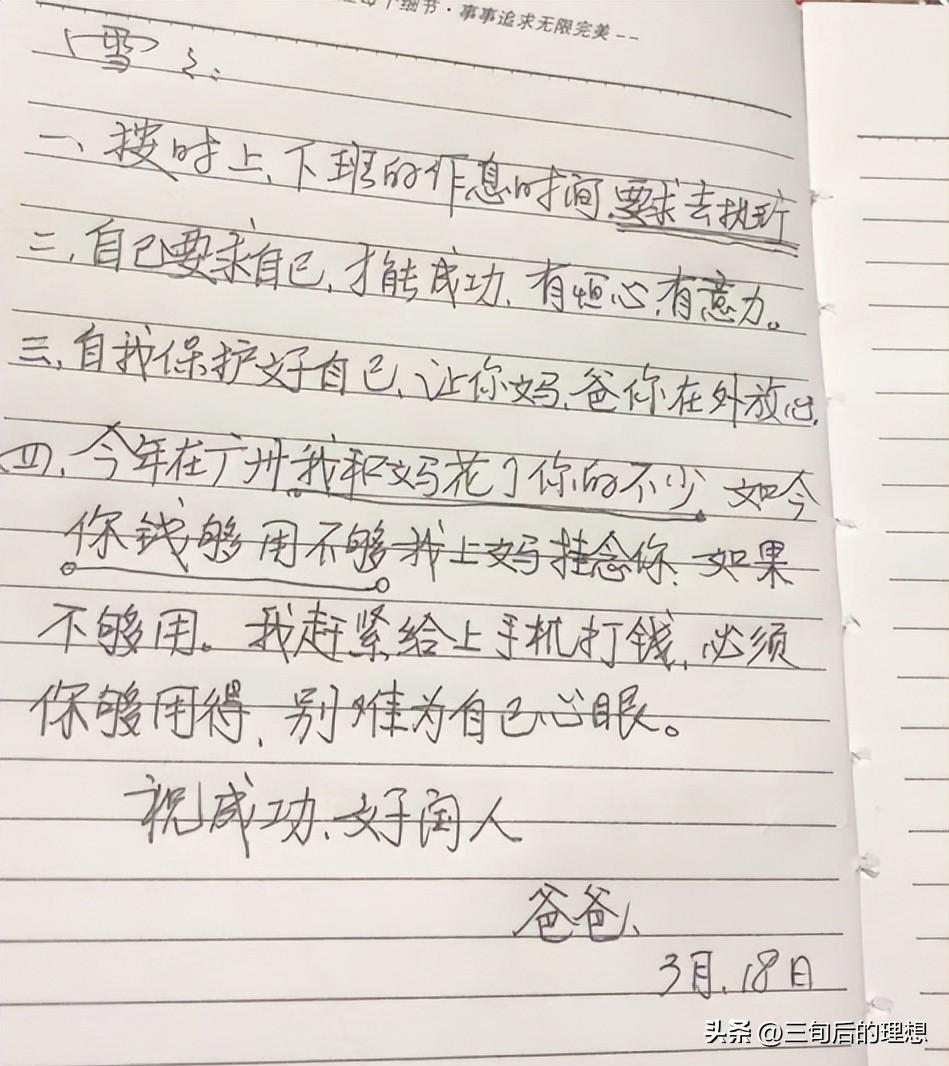 个细节·事事追求无限完美--
雪
一、按时上、下班的作息时间要求去执行
二、自己要求自己，才能成功、有恒心，有意力。
三、自我保护好自己、让你妈、爸你在外放心.
四、今年在广州我和妈花了你的不少 如今
你钱够用不够我上妈挂念你. 如果
不够用。我赶紧给上手机打钱，必须
你够用得，别难为自己心眼。
祝成功、好 人
爸爸、
3月.18日
头条 @三旬后的理想